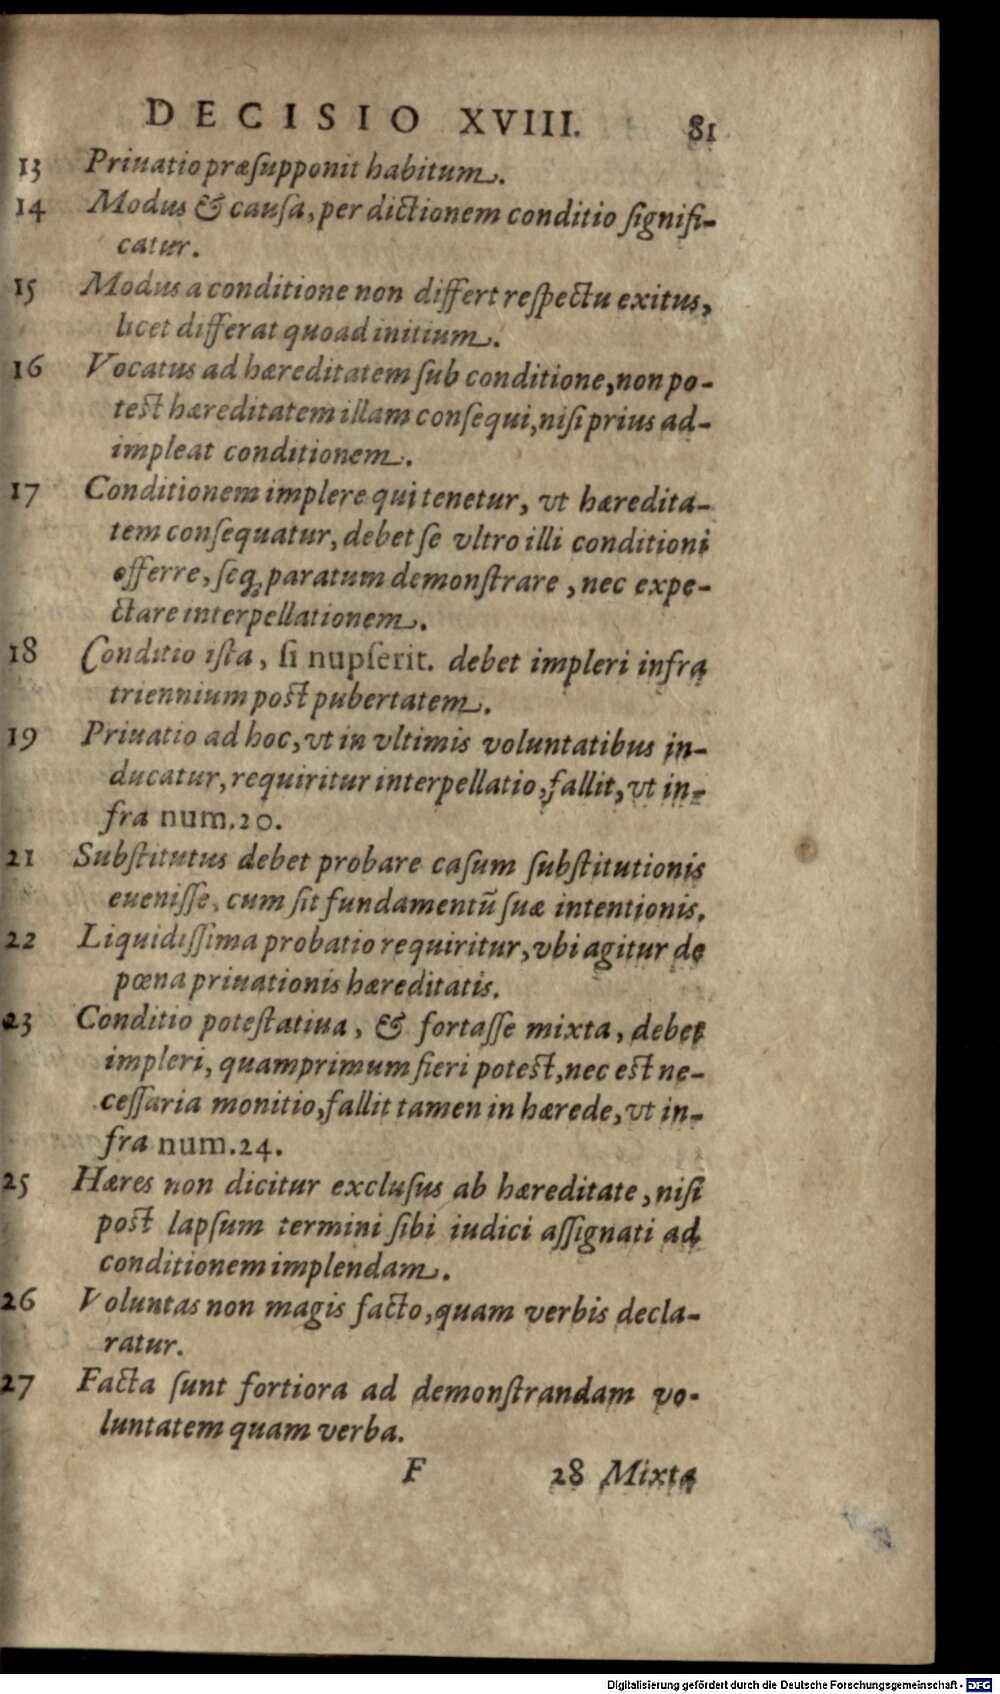 DECISIO XVIII. 81
13 Priuatio præſupponit habitum.
14 Modus & cauſa, per dictionem conditio ſignifi-
catur.
15 Modus a conditione non differt reſpectu exitus,
licet differat quoad initium.
16 Vocatus ad hæreditatem ſub conditione, non po-
test hæreditatem illam conſequi, niſi prius ad-
impleat conditionem.
17 Conditionem implere qui tenetur, vt hæredita-
tem conſequatur, debet ſe vltro illi conditioni
offerre, ſeq; paratum demonſtrare, nec expe-
ctare interpellationem.
18 Conditio iſta, ſi nupſerit. debet impleri infra
triennium post pubertatem.
19 Priuatio ad hoc, vt in vltimis voluntatibus in-
ducatur, requiritur interpellatio, fallit, vt in-
fra num. 20.
21 Subſtitutus debet probare caſum ſubſtitutionis
eueniſſe, cum ſit fundamentū ſuæ intentionis.
22 Liquidiſſima probatio requiritur, vbi agitur de
pœna priuationis hæreditatis.
23 Conditio poteſtatiua, & fortaſſe mixta, debet
impleri, quamprimum fieri potest, nec est ne-
ceſſaria monitio, fallit tamen in hærede, vt in-
fra num. 24.
25 Hæres non dicitur excluſus ab hæreditate, niſi
post lapſum termini ſibi iudici aſſignati ad
conditionem implendam.
26 Voluntas non magis facto, quam verbis decla-
ratur.
27 Facta ſunt fortiora ad demonſtrandam vo-
luntatem quam verba.
F 28 Mixta
Digitalisierung gefördert durch die Deutsche Forschungsgemeinschaft - DFG